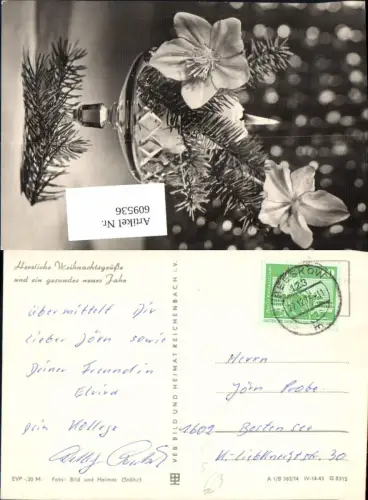 Artikel Nr.
609536
Herzliche Weihnachtsgrüße
und ein gesundes neues Jahr
übermittelt Dir
lieber Jörn sowie
Deiner Freundin
Elvira
Dein Kollege
EVP -,20 M
Foto: Bild und Heimat
VEB BILD UND HEIMAT REICHENBACH i. V.
BEESKOW
Herrn
Jörn Probe
1602 Besten see
K.-Liebknechtstr. 30
A 1/B 362/74 IV-14-45